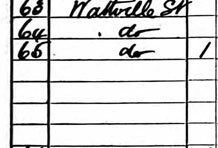 63 Wattville St
64 . do
65 do 1